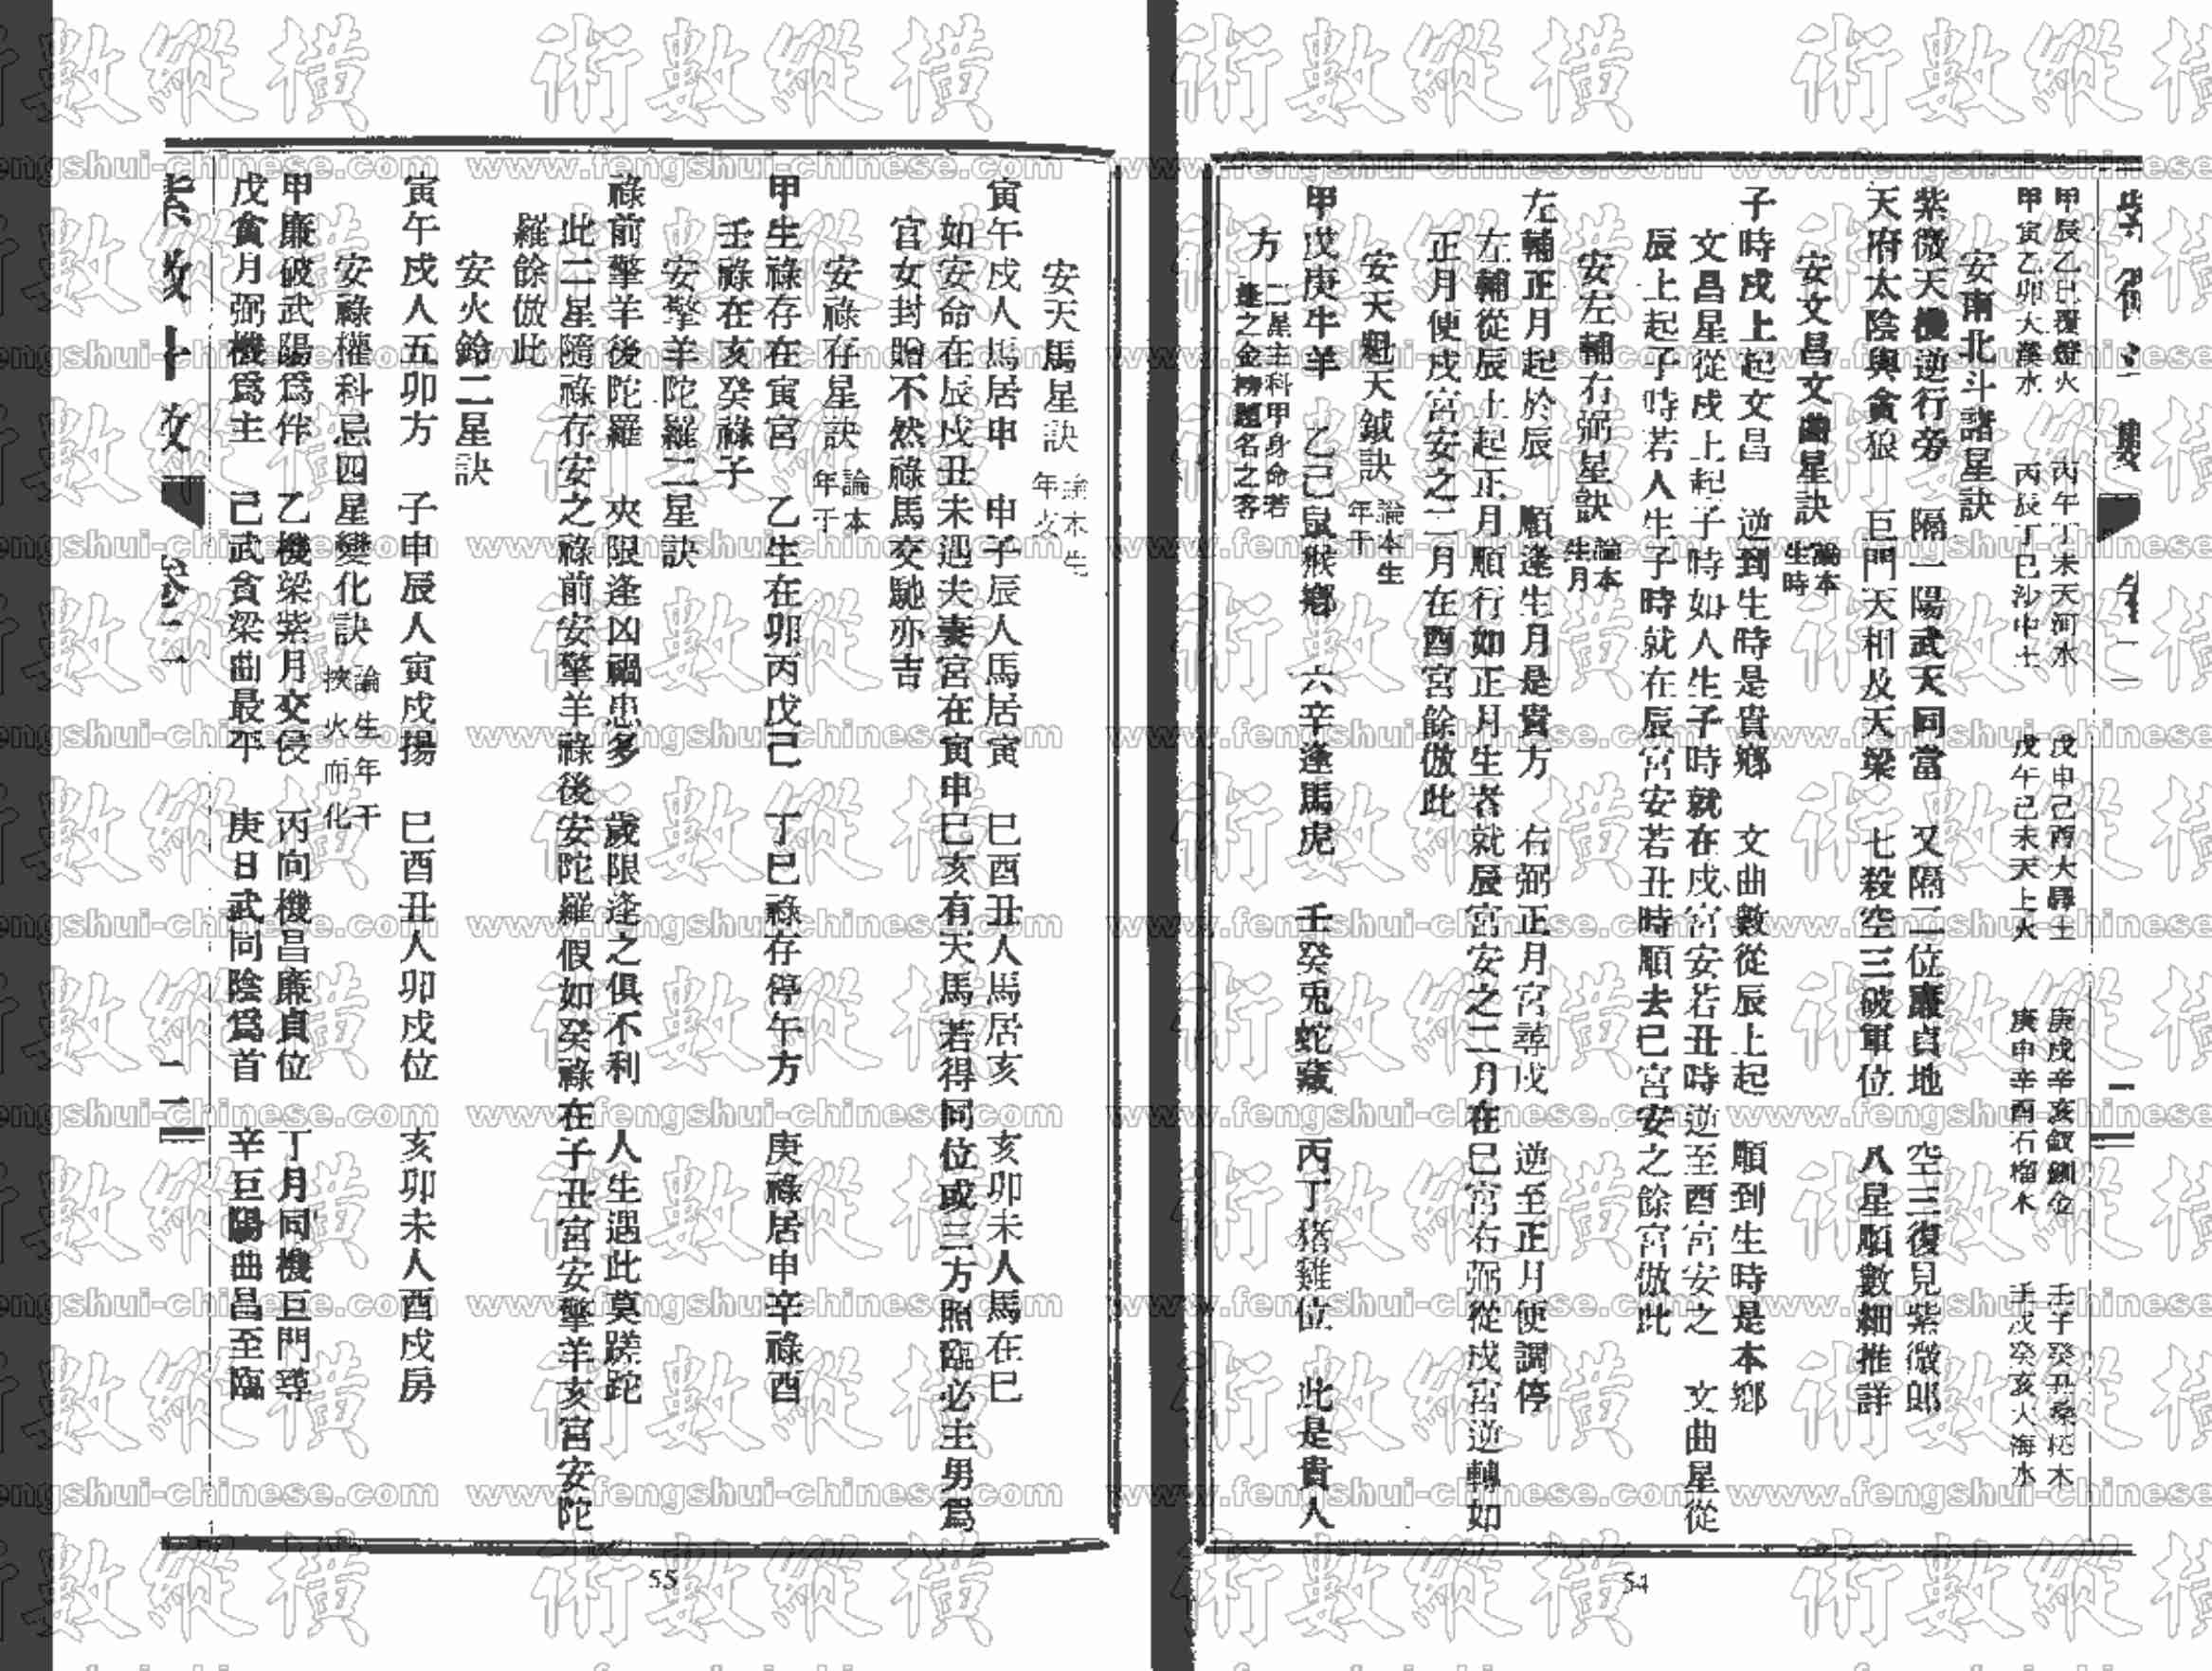 甲辰乙巳覆燈火　丙午丁未天河水　戊申己酉大驛土　庚戌辛亥釵釧金　壬子癸丑桑柘木
甲寅乙卯大溪水　丙辰丁巳沙中土　戊午己未天上火　庚申辛酉石榴木　壬戌癸亥大海水
安南北斗諸星訣
紫微天機逆行旁　隔一陽武天同當　又隔二位廉貞地　空三復見紫微郎
天府太陰與貪狼　巨門天相及天梁　七殺空三破軍位　八星順數細推詳
安文昌文曲星訣　論本生時
子時戌上起文昌　逆到生時是貴鄉　文曲數從辰上起　順到生時是本鄉
文昌星從戌上起子時如人生子時就在戌宮安若丑時逆至酉宮安之　文曲星從
辰上起子時若人生子時就在辰宮安若丑時順去巳宮安之餘宮倣此
安左輔右弼星訣　論本生月
左輔正月起於辰　順逢生月是貴方　右弼正月宮尋戌　逆至正月便調停
左輔從辰上起正月順行如正月生者就辰宮安之二月在巳宮右弼從戌宮逆轉如
正月便戌宮安之二月在酉宮餘倣此
安天魁天鉞訣　論本生年干
甲戊庚牛羊　乙己鼠猴鄉　六辛逢馬虎　壬癸兎蛇藏　丙丁猪雞位　此是貴人
方　二星主科甲身命若逢之金榜題名之客
54
安天馬星訣　論本生年支
寅午戌人馬居申　申子辰人馬居寅　巳酉丑人馬居亥　亥卯未人馬在巳
如安命在辰戌丑未遇夫妻宮在寅申巳亥有天馬若得同位或三方照臨必主男爲
官女封贈不然祿馬交馳亦吉
安祿存星訣　論本年干
甲生祿存在寅宮　乙生在卯丙戊己　丁巳祿存停午方　庚祿居申辛祿酉
壬祿在亥癸祿子
安擎羊陀羅二星訣
祿前擎羊後陀羅　夾限逢凶禍患多　歲限逢之俱不利　人生遇此莫蹉跎
此二星隨祿存安之祿前安擎羊祿後安陀羅假如癸祿在子丑宮安擎羊亥宮安陀
羅餘倣此
安火鈴二星訣
寅午戌人五卯方　子申辰人寅戌揚　巳酉丑人卯戌位　亥卯未人酉戌房
安祿權科忌四星變化訣　論生年干挾火而化
甲廉破武陽爲伴　乙機梁紫月交侵　丙向機昌廉貞位　丁月同機巨門尋
戊貪月弼機爲主　己武貪梁曲最平　庚日武同陰爲首　辛巨陽曲昌至臨
卷二
二二
55
術數縱橫
www.fengshui-chinese.com